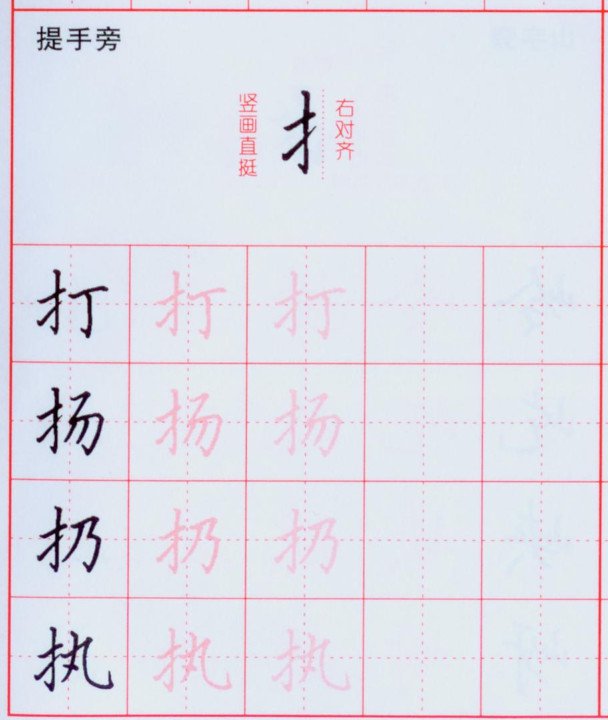 提手旁
竖画直挺
扌
右对齐
打 打 打
扬 扬 扬
扔 扔 扔
执 执 执